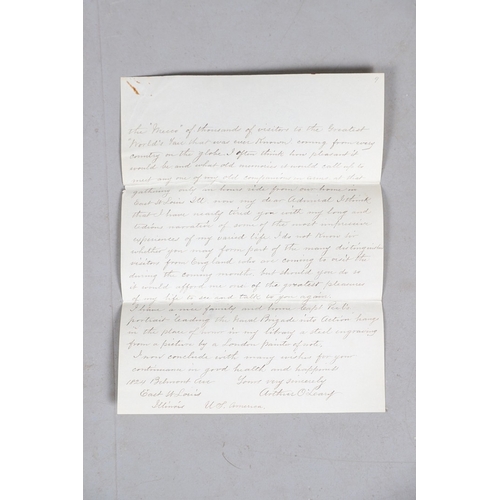 the "Mecca" of thousands of visitors to the Greatest
World's Fair that was ever known, coming from every
country on the globe. I often think how pleasant it
would be and what old memories it would call up to
meet any one of my old companions in arms at that
gathering only an hours ride from our home in
East St Louis Ill. now my dear Admiral I think
that I have nearly tired you with my long and
tedious narrative of some of the more impressive
experiences of my naval life. I do not know if
whether you may form part of the many distinguished
visitors from England who are coming to visit the
during the coming months but should you do so
it would afford me one of the greatest pleasures
of my life to see and talk to you again.
I have a nice family and Capt Peel's
portrait leading the Naval Brigade into Action hangs
in the place of honor in my library a steel engraving
from a picture by a London of note.
I now conclude with many wishes for your
continuance in good health and happiness
1024 Belmont Ave Yours very sincerely
East St Louis Arthur O'Leary
Illinois U.S. America